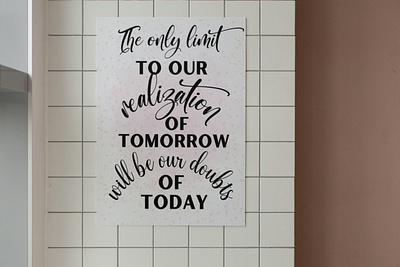 The only limit
TO OUR
realization
OF
TOMORROW
will be our doubts
OF
TODAY